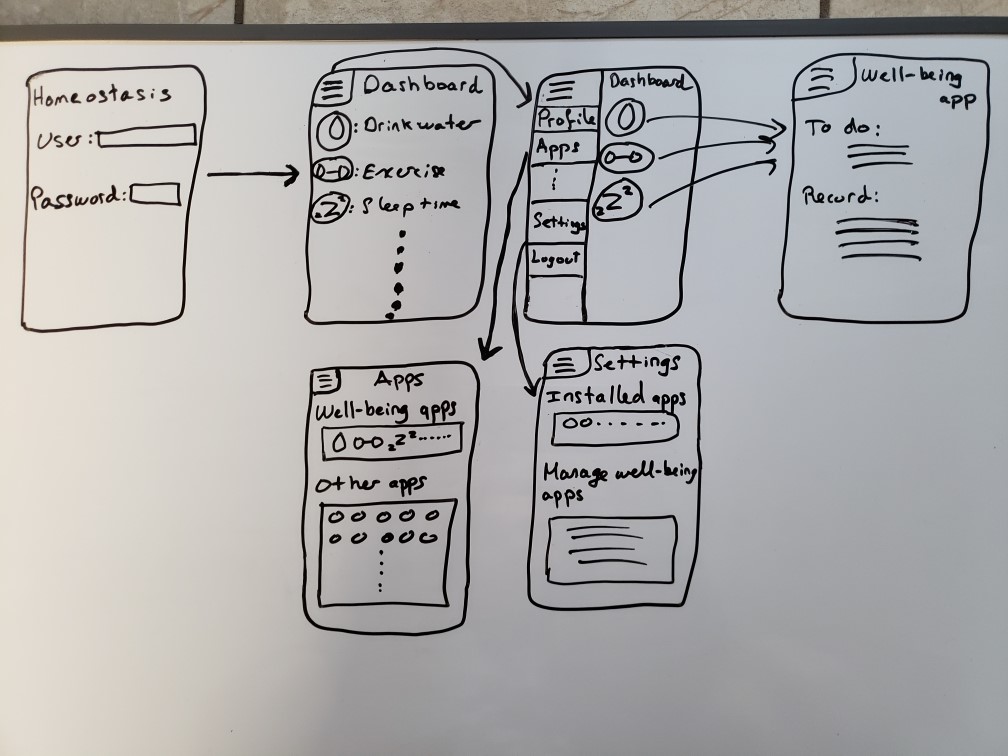 Homeostasis
User:
Password:
Dashboard
: Drink water
: Exercise
zZz: Sleep time
Dashboard
Profile
Apps
Settings
Logout
zZz
Well-being
app
To do:
Record:
Apps
Well-being apps
zZz
Other apps
Settings
Installed apps
Manage well-being
apps